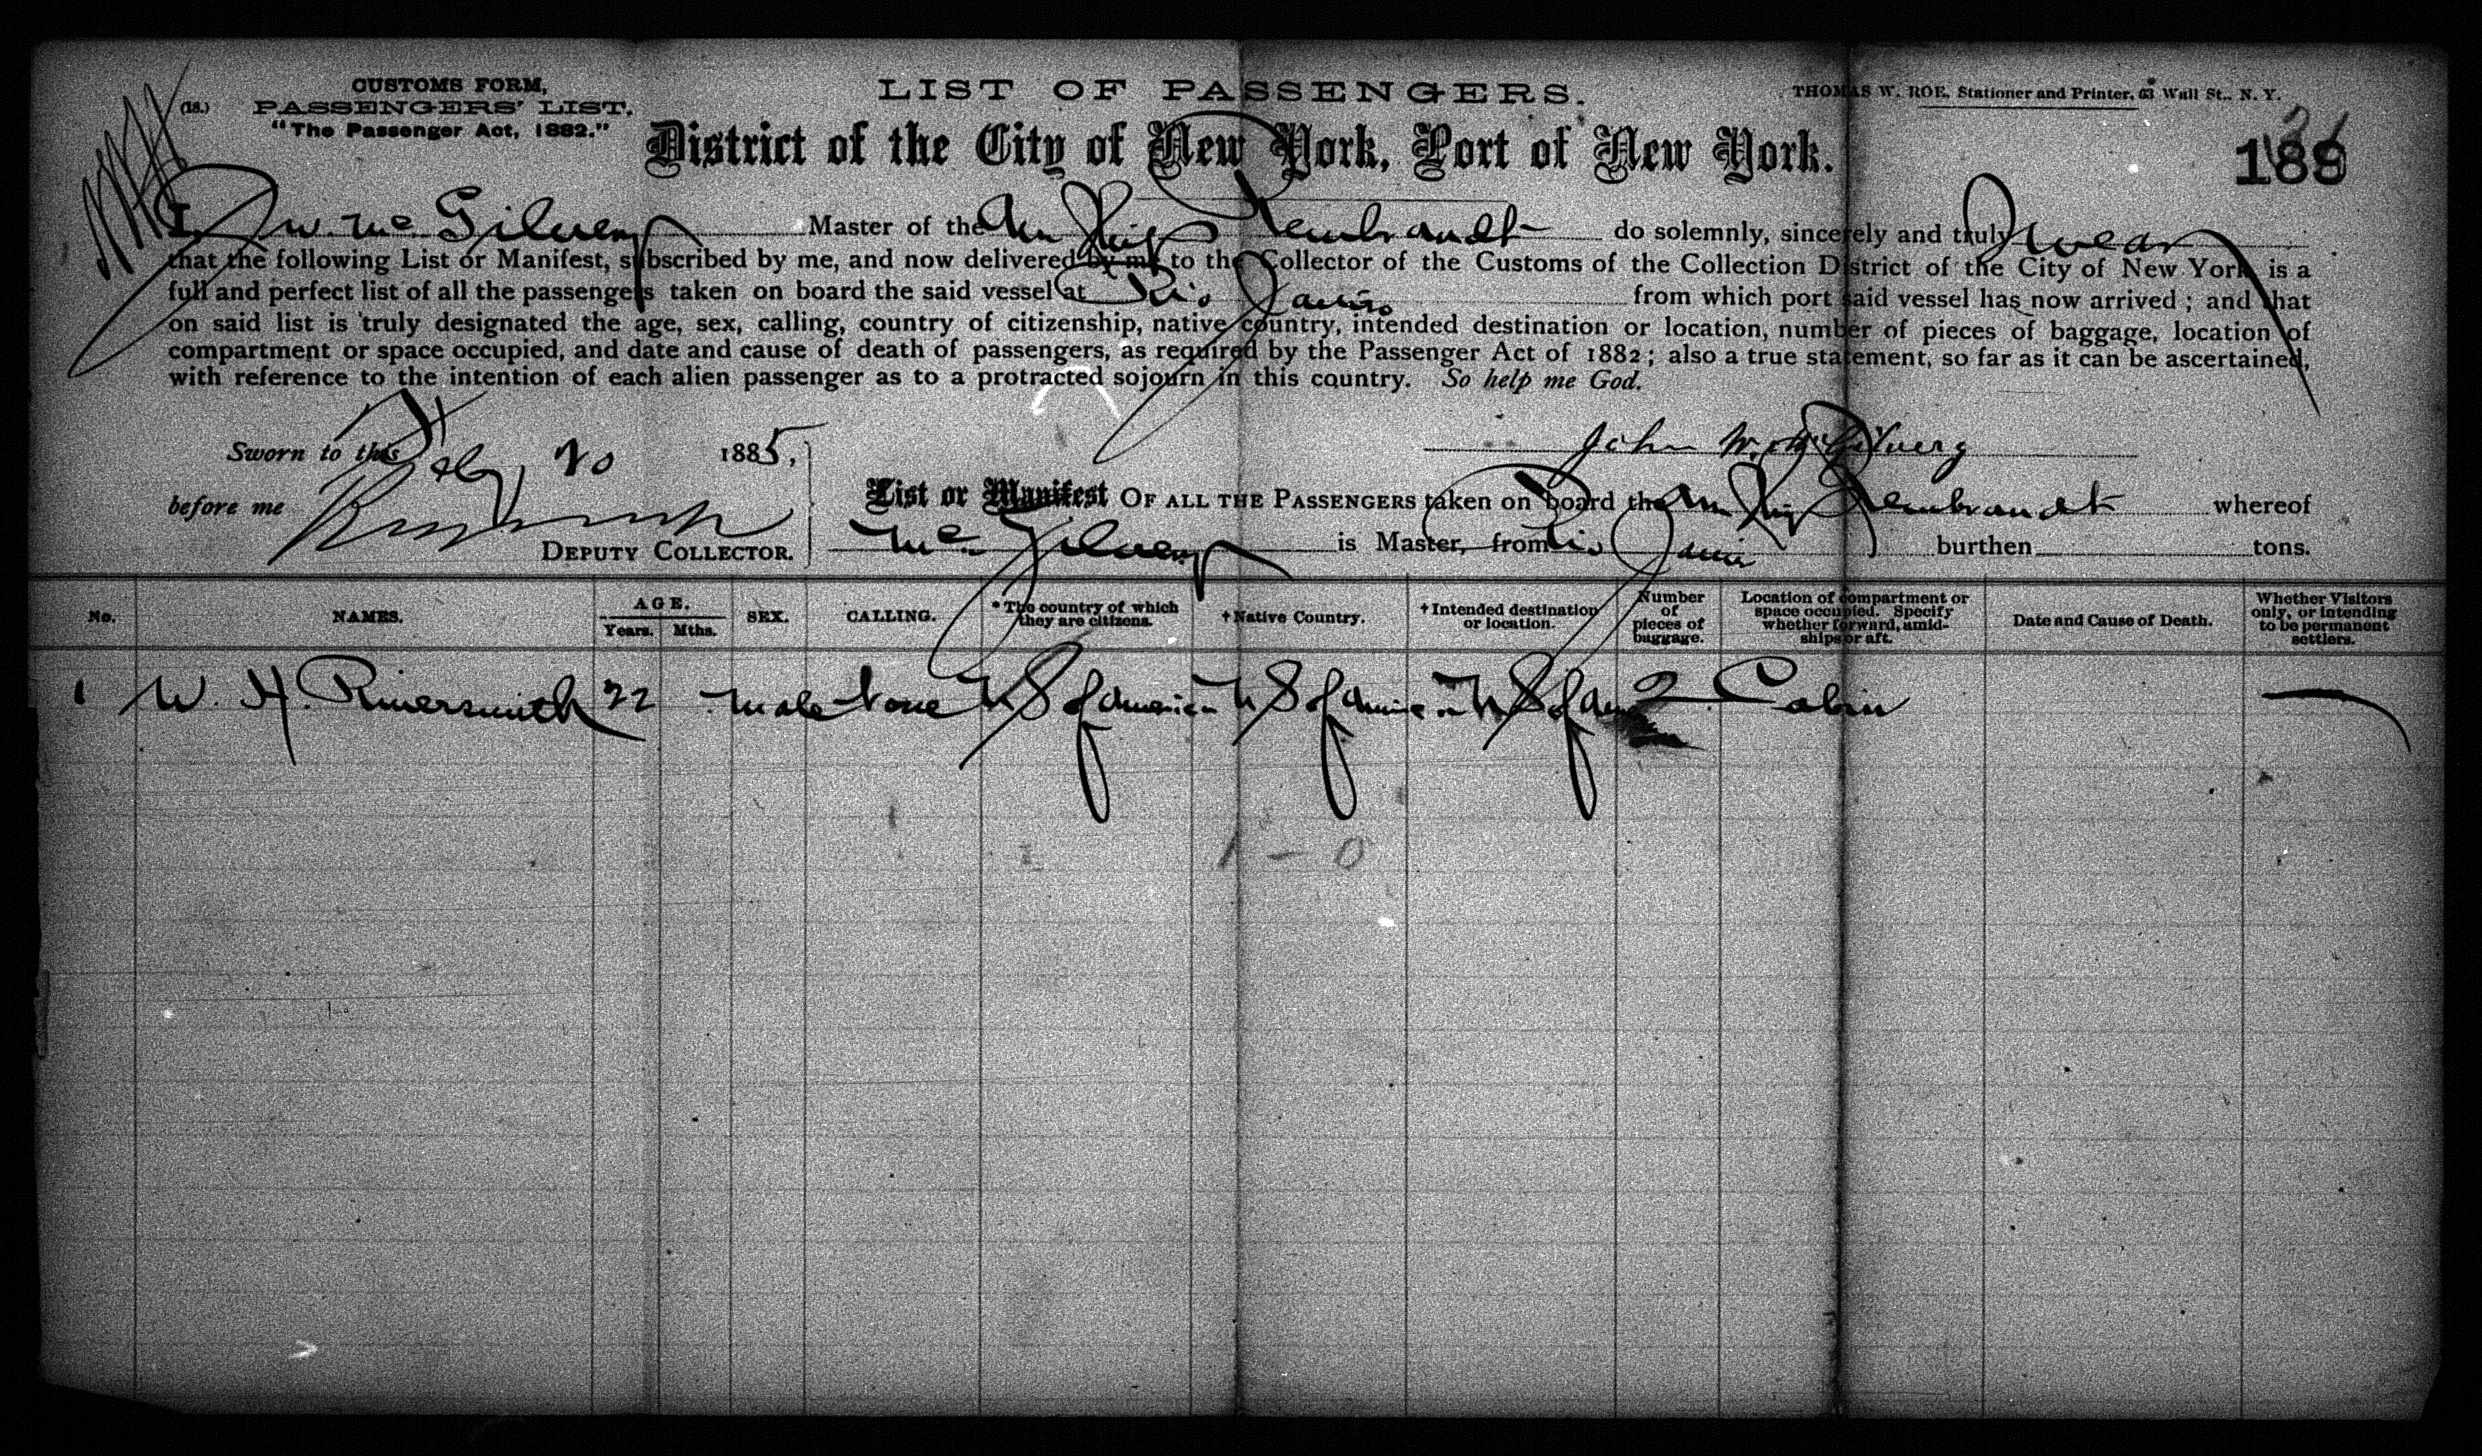 CUSTOMS FORM,
(18.) PASSENGERS' LIST.
"The Passenger Act, 1882."
LIST OF PASSENGERS.
THOMAS W. ROE, Stationer and Printer, 63 Wall St., N. Y.
District of the City of New York, Port of New York.
189
I, J. W. Mc Gilvery Master of the Am Ship Rembrandt do solemnly, sincerely and truly swear
that the following List or Manifest, subscribed by me, and now delivered by me to the Collector of the Customs of the Collection District of the City of New York is a
full and perfect list of all the passengers taken on board the said vessel at Rio Janiro from which port said vessel has now arrived; and that
on said list is truly designated the age, sex, calling, country of citizenship, native country, intended destination or location, number of pieces of baggage, location of
compartment or space occupied, and date and cause of death of passengers, as required by the Passenger Act of 1882; also a true statement, so far as it can be ascertained,
with reference to the intention of each alien passenger as to a protracted sojourn in this country. So help me God.
Sworn to this Feby 20 1885,
John W. McGilvery
before me
DEPUTY COLLECTOR.
List or Manifest OF ALL THE PASSENGERS taken on board the Am Ship Rembrandt whereof
Mc. Gilvery is Master, from Rio Janir burthen tons.
No. NAMES. AGE. Years. Mths. SEX. CALLING. *The country of which they are citizens. †Native Country. †Intended destination or location. Number of pieces of baggage. Location of compartment or space occupied. Specify whether forward, amidships or aft. Date and Cause of Death. Whether Visitors only, or intending to be permanent settlers.
1 W. H. Riversmith 22 male none U S of American U S of American U S of Am 2 Cabin —
1 - 0